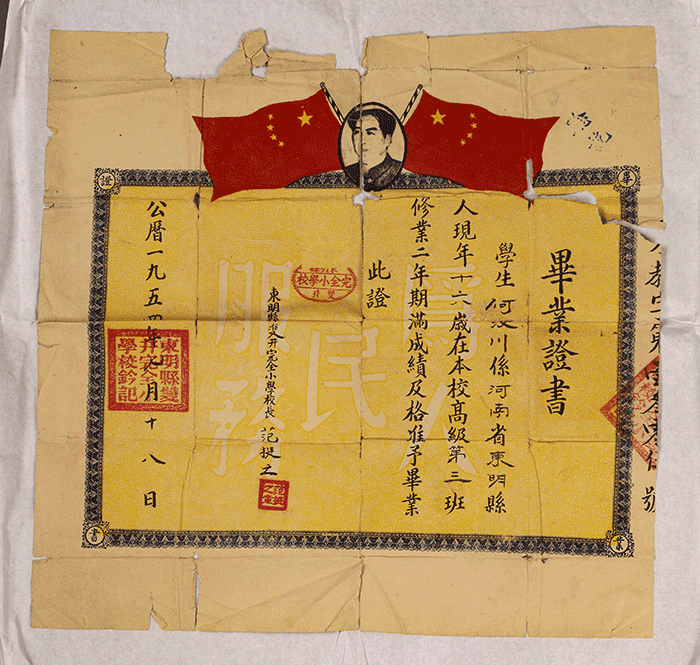 畢業證書
學生何汝川係河南省東明縣
人現年十六歲在本校高級第三班
修業二年期滿成績及格准予畢業
此證
東明縣雙井完全小學校長 范挺之
公曆一九五四年元月十八日
為人民服務
完全小學校
雙井
東明縣雙井完全小學校鈐記
畢
業
證
書
號